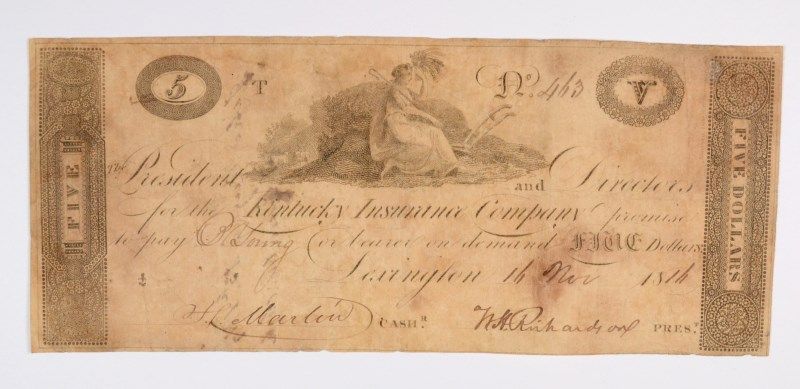 5 T Nº. 463 V
The President and Directors
for the Kentucky Insurance Company promise
to pay Young or bearer on demand FIVE Dollars
Lexington 16 Nov 1816
Martin CASHR. W.H. Richardson PREST.
FIVE
FIVE DOLLARS